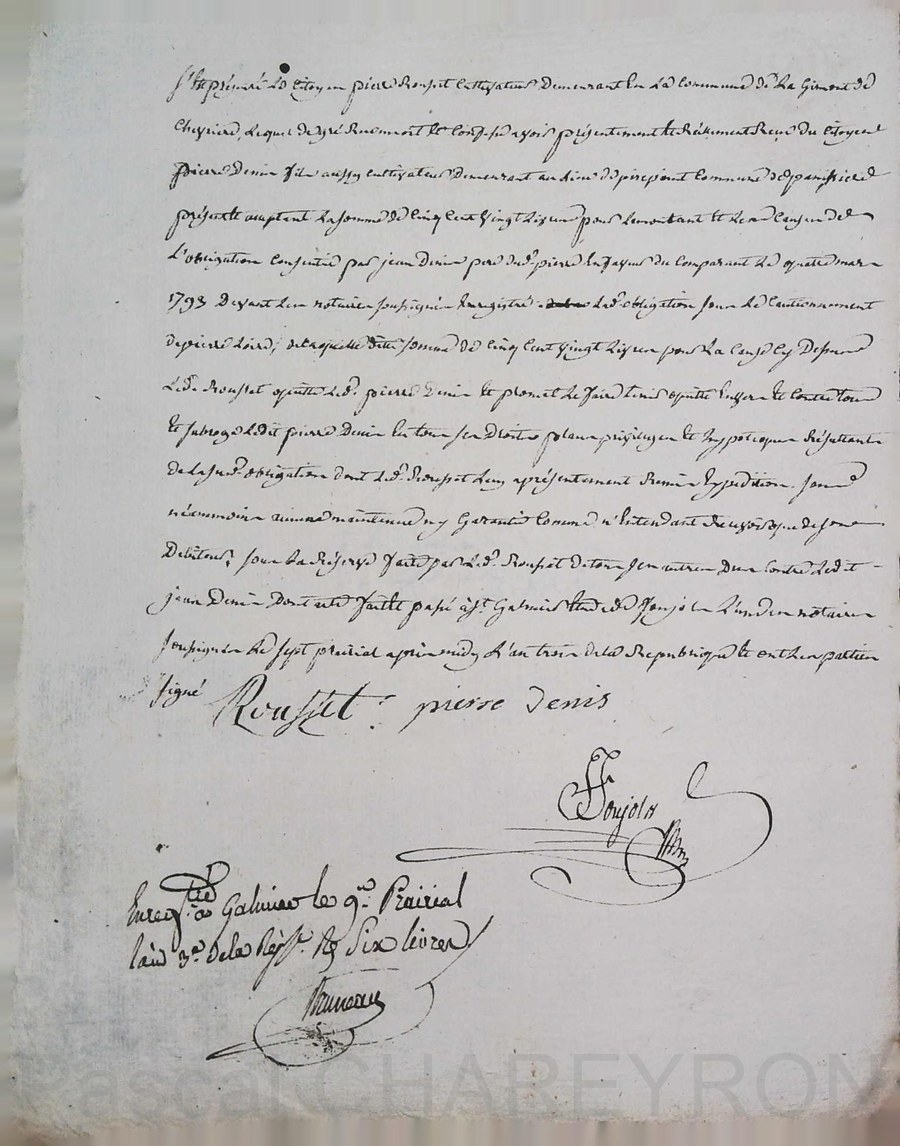 S'est présenté Le Citoyen pierre Rousset Cultivateur Demeurant En La Commune de La Gimont de
Chevriere Lequel de gré Reconnoit Et Confesse avoir présentement Et Réélement Receu du Citoyen
pierre Denis fils aussy Cultivateur Demeurant au Lieu de commune de panissiere
présent Et acceptant La Somme de Cinq Cent Vingt Livres pour Le montant Et Les Causes de
L'obligation Consentie par jean Denis pere dud. pierre En faveur du Comparant Le quatre mars
1793 Devant Les notaires soussignés Enregistré Lad. obligation sous Le Cautionnement
de pierre Loire, de Laquelle ditte somme de Cinq Cent Vingt Livres pour La Cause Cy Dessus
Led. Rousset quitte Led. pierre Denis Et promet Le faire tenir quitte Envers Et Contre tous
Et subroge Ledit pierre Denis En tous ses Droits places privileges Et hypoteques Résultants
de La susd. obligation dont Led. Rousset Luy a présentement Remis Expedition sans
néammoins aucune maintenue ny Garantie Comme n'Entendant
Debiteur, sous La Réserve faite par Led. Rousset de tous ses autres Dus Contre Ledit
jean Denis Dont acte fait Et passé à St Galmier Etude de Ponjols L'un des notaires
soussignés Le sept prairial apres midy L'an trois de la Republique Et ont Les parties
signé
Rousset. pierre Denis
Ponjols
Enregistré à Galmier le 9e. Prairial
l'an 3e. de la Rép. R. Six livres